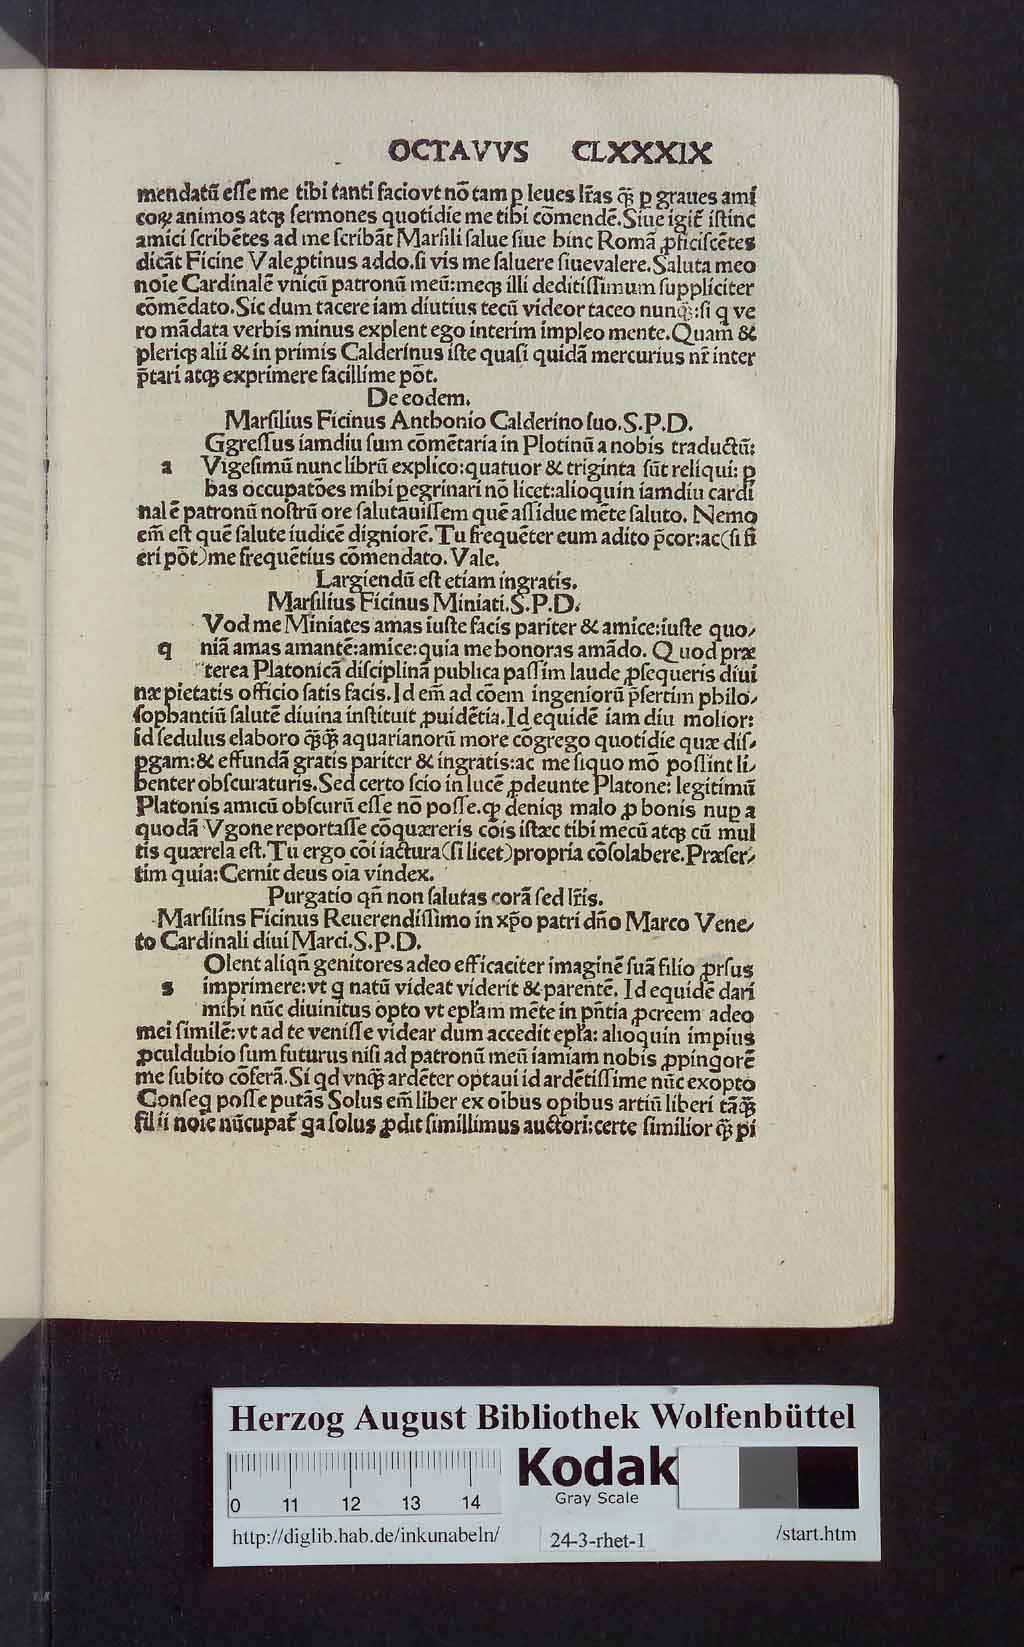 OCTAVVS CLXXXIX
mendatū eſſe me tibi tanti facio vt nō tam ꝑ leues lr̄as q̄ꝫ ꝑ graues ami
coꝝ animos atqꝫ ſermones quotidie me tibi cōmendē. Siue igit̄ iſtinc
amici ſcribētes ad me ſcribāt Marſili ſalue ſiue hinc Romā ꝓficiſcētes
dicāt Ficine Vale ꝓtinus addo. ſi vis me ſaluere ſiue valere. Saluta meo
noīe Cardinalē vnicū patronū meū: meqꝫ illi deditiſſimum ſuppliciter
cōmēdato. Sic dum tacere iam diutius tecū videor taceo nunq̄ꝫ: ſi q ve
ro mādata verbis minus explent ego interim impleo mente. Quam &
pleriqꝫ alii & in primis Calderinus iſte quaſi quidā mercurius nr̄ inter
p̄tari atqꝫ exprimere facillime pōt.
De eodem.
Marſilius Ficinus Anthonio Calderino ſuo. S.P.D.
Ggreſſus iamdiu ſum cōmētaria in Plotinū a nobis traductū:
a Vigeſimū nunc librū explico: quatuor & triginta ſūt reliqui: ꝑ
has occupatōes mihi ꝑegrinari nō licet: alioquin iamdiu cardi
nalē patronū noſtrū ore ſalutauiſſem quē aſſidue mēte ſaluto. Nemo
em̄ eſt quē ſalute iudicē digniorē. Tu frequēter eum adito p̄cor: ac (ſi fi
eri pōt) me frequētius cōmendato. Vale.
Largiendū eſt etiam ingratis.
Marſilius Ficinus Miniati. S.P.D.
Vod me Miniates amas iuſte facis pariter & amice: iuſte quo⸗
q niā amas amantē: amice: quia me honoras amādo. Quod præ
terea Platonicā diſciplinā publica paſſim laude ꝓſequeris diui
næ pietatis officio ſatis facis. Id em̄ ad cōem ingeniorū p̄ſertim philo⸗
ſophantiū ſalutē diuina inſtituit ꝓuidētia. Id equidē iam diu molior:
id ſedulus elaboro q̄ꝫq̄ꝫ aquarianorū more cōgrego quotidie quæ diſ⸗
ꝑgam: & effundā gratis pariter & ingratis: ac me ſiquo mō poſſint li⸗
benter obſcuraturis. Sed certo ſcio in lucē ꝓdeunte Platone: legitimū
Platonis amicū obſcurū eſſe nō poſſe. ꝙ deniqꝫ malo ꝓ bonis nuꝑ a
quodā Vgone reportaſſe cōquæreris cōis iſtæc tibi mecū atqꝫ cū mul
tis quærela eſt. Tu ergo cōi iactura (ſi licet) propria cōſolabere. Præſer⸗
tim quia: Cernit deus oīa vindex.
Purgatio qn̄ non ſalutas corā ſed lr̄is.
Marſilins Ficinus Reuerendiſſimo in xp̄o patri dn̄o Marco Vene⸗
to Cardinali diui Marci. S.P.D.
Olent aliqn̄ genitores adeo efficaciter imaginē ſuā filio ꝓrſus
s imprimere: vt q natū videat viderit & parentē. Id equidē dari
mihi nūc diuinitus opto vt epl̄am mēte in pn̄tia ꝓcreem adeo
mei ſimilē: vt ad te veniſſe videar dum accedit epl̄a: alioquin impius
ꝓculdubio ſum futurus niſi ad patronū meū iamiam nobis ꝓpinqorē
me ſubito cōferā. Si qd vnq̄ꝫ ardēter optaui id ardētiſſime nūc exopto
Conſeq poſſe putās Solus em̄ liber ex oībus opibus artiū liberi tāq̄ꝫ
filii noīe nūcupat̄ qa ſolus ꝓdit ſimillimus auctori: certe ſimilior q̄ꝫ pi
Herzog August Bibliothek Wolfenbüttel
Kodak
Gray Scale
0 11 12 13 14
http://diglib.hab.de/inkunabeln/ 24-3-rhet-1 /start.htm